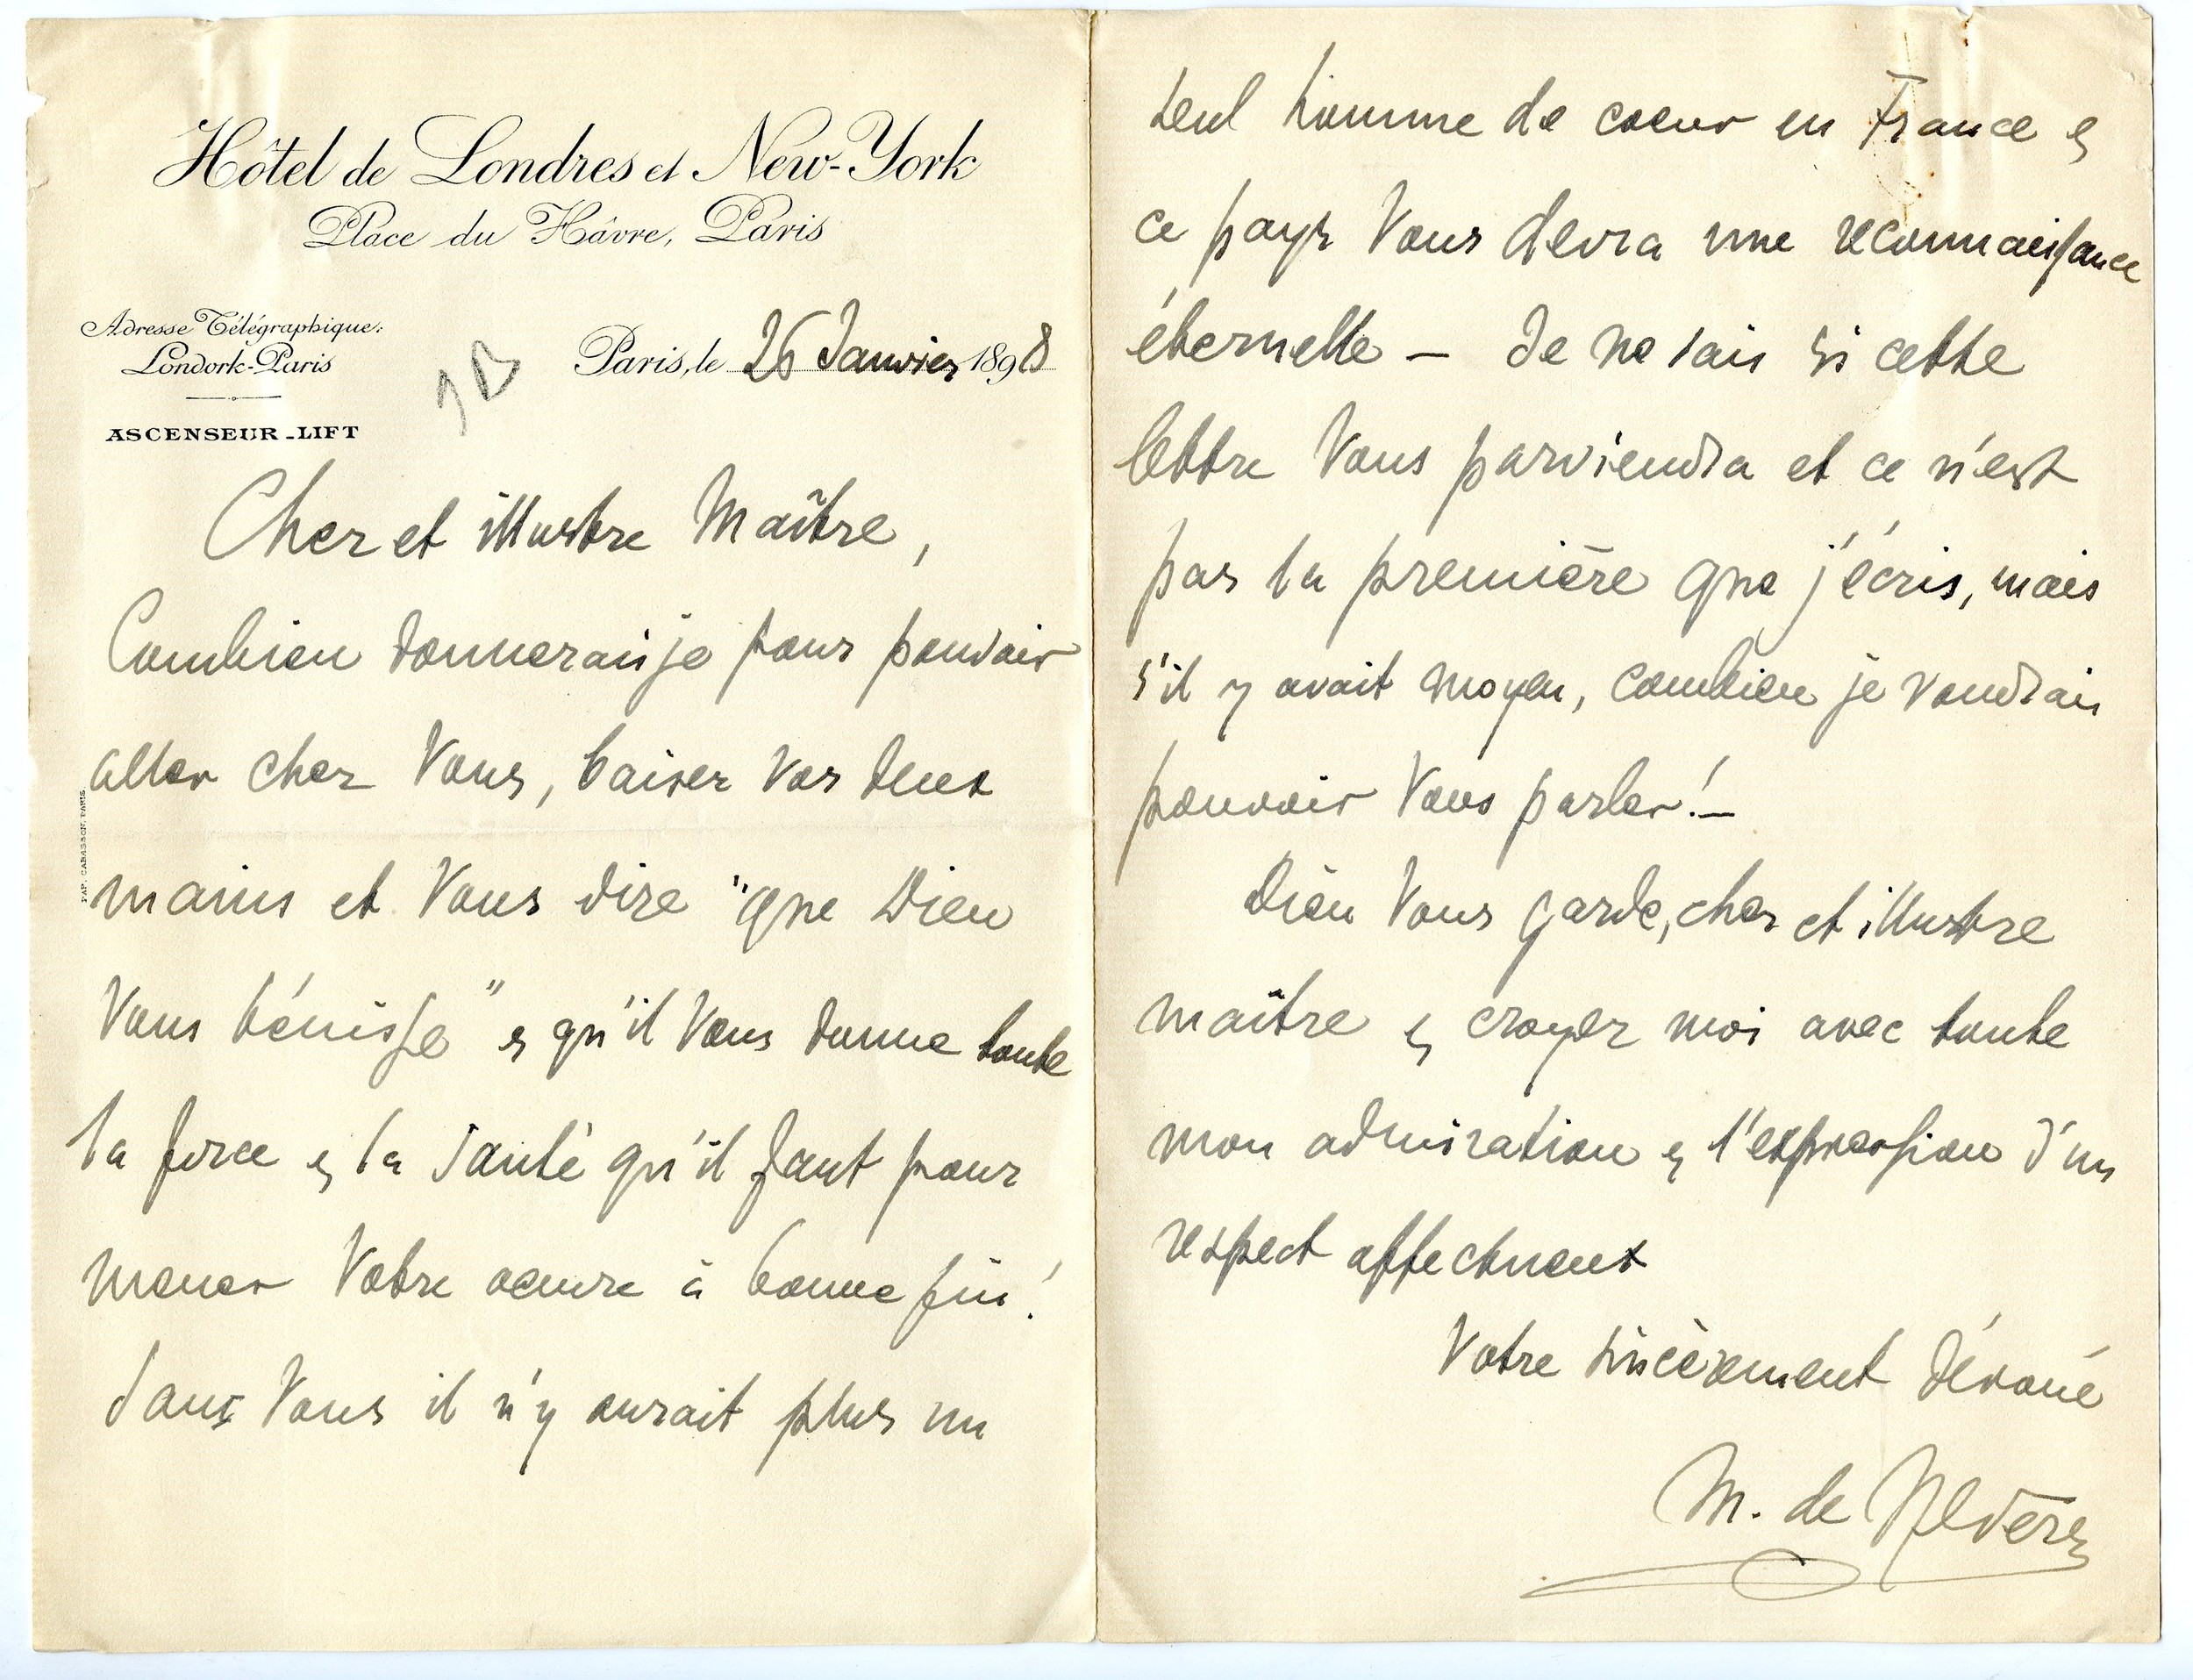 Hôtel de Londres et New-York
Place du Hâvre, Paris
Adresse Télégraphique:
Londork-Paris
ASCENSEUR-LIFT
Paris, le 26 Janvier 1898
Cher et illustre Maître,
Combien donneraisje pour pouvoir
aller chez Vous, baiser vos deux
mains et Vous dire "que Dieu
Vous bénisse" & qu'il Vous donne toute
la force & la santé qu'il faut pour
mener Votre oeuvre à bonne fin!
Sans Vous il n'y aurait plus un
seul homme de coeur en France &
ce pays Vous devra une reconnaissance
éternelle — Je ne sais si cette
lettre Vous parviendra et ce n'est
pas la première que j'écris, mais
s'il y avait moyen, combien je voudrais
pouvoir Vous parler! —
Dieu Vous garde, cher et illustre
maître & croyez moi avec toute
mon admiration & l'expression d'un
respect affectueux
Votre sincèrement dévoué
M. de
PAP. CABASSON, PARIS